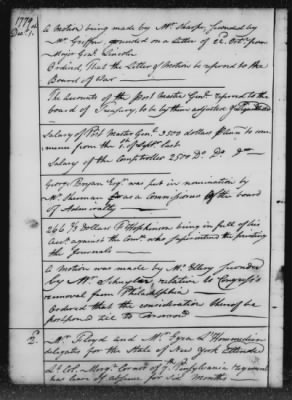 1779
Decr. 1.
A Motion being made by Mr. Sharpe, seconded by
Mr. Griffin, grounded on a Letter of 22. Octr. from
Major Genl. Lincoln
Ordered, That the Letter & Motion be referred to the
Board of War
The Accounts of the Post Master Genl. referred to the
board of Treasury, to be by them adjusted &
Salary of Post Master Genl. 3500 dollars annum to com-
mence from the 1. of Septr. last
Salary of the Comptroller 2500 Do. Do. Do
George Bryan Esqr. was put in nomination by
Mr. Sherman as a Commissioner of the board
of Admiralty
266.⅔ Dollars F Hopkinson being in full of his
Acct. against the Comee. who superintend the printing
the Journals
A Motion was made by Mr. Ellery seconded
by Mr. Schuyler, relative to Congress's
removal from Philadelphia
Ordered that the consideration thereof be
postponed till to Morrow
2. Mr. Floyd and Mr. Ezra L'Hommedieu
delegates for the State of New York Attended
Lt. Col. of 7th. Pensylvania regiment
has leave of absence for Six Months